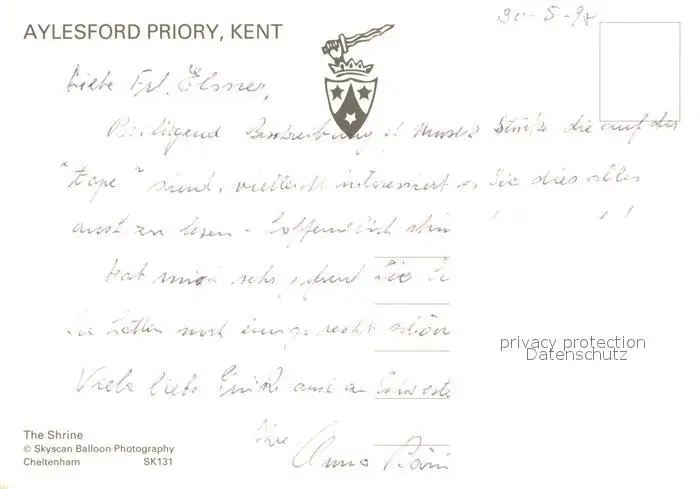 30-5-92
AYLESFORD PRIORY, KENT
Liebe Frl. Elsner,
Beiliegend Beschreibung d. Musik Stücke die auf der
"tape" sind, vielleicht interessiert es Sie dies alles
zu lesen - hoffentlich
Hat mich sehr gefreut Sie
Sie hatten noch einige recht schön
Viele liebe Grüße auch an Schweste
Ihre
Anna
privacy protection
Datenschutz
The Shrine
© Skyscan Balloon Photography
Cheltenham SK131